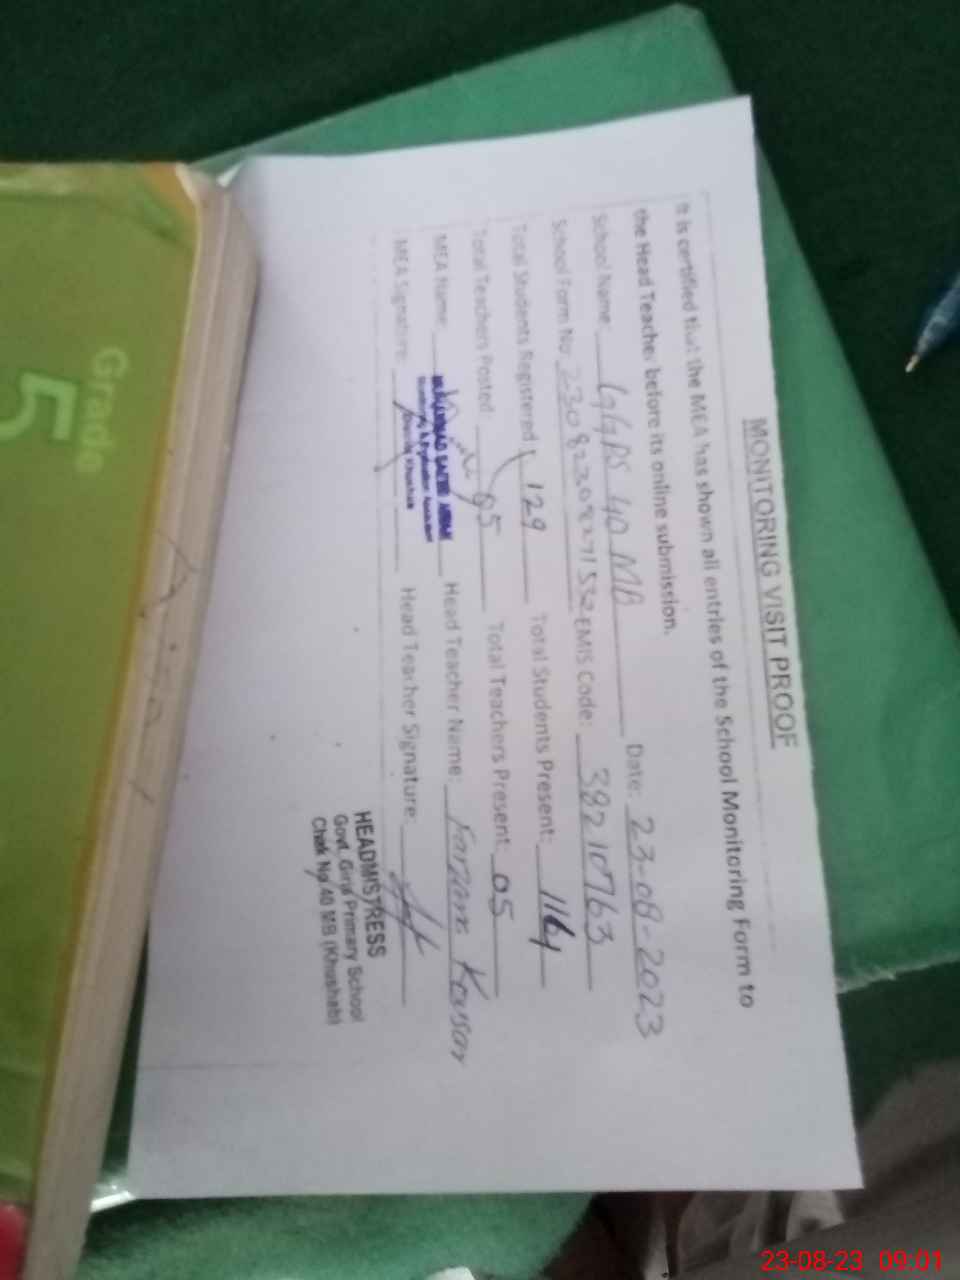 MONITORING VISIT PROOF
It is certified that the MEA has shown all entries of the School Monitoring Form to
the Head Teacher before its online submission.
School Name: GGPS 40 MB Date: 23-08-2023
School Form No: EMIS Code: 38210763
Total Students Registered 129 Total Students Present: 116
Total Teachers Posted 05 Total Teachers Present: 05
MEA Name: Head Teacher Name: Farzana Kousar
MEA Signature: Head Teacher Signature:
HEADMISTRESS
Govt. Girls Primary School
Chak No 40 MB (Khushab)
Grade
5
23-08-23 09:01